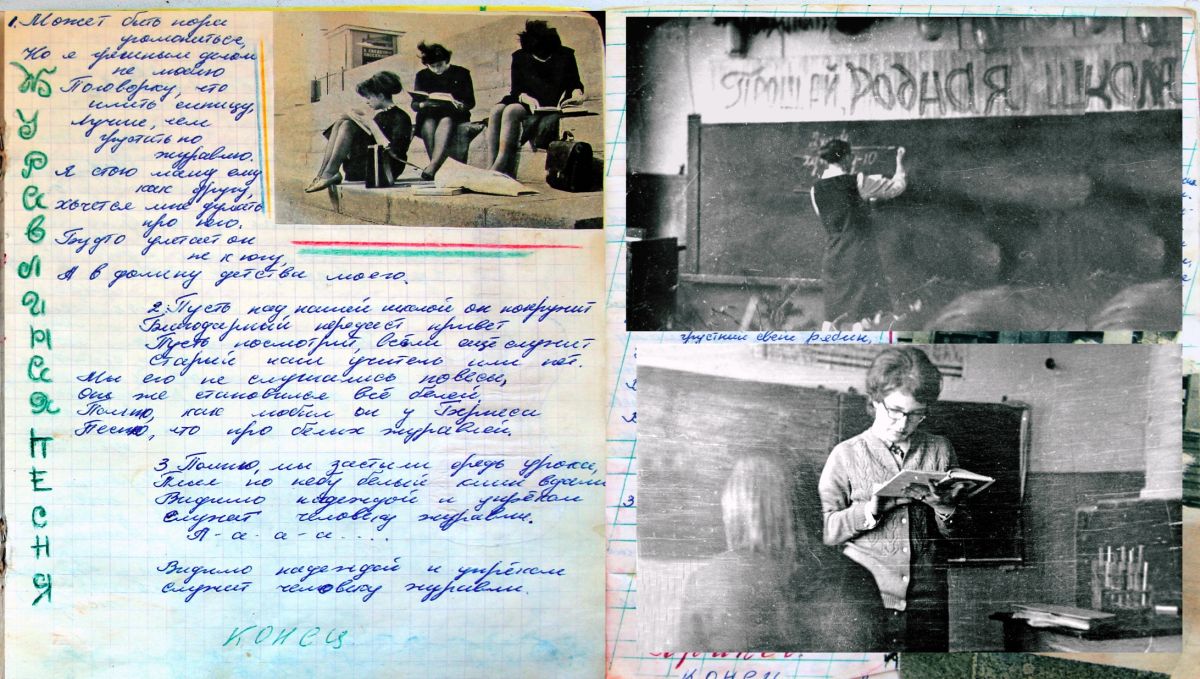 Журавлиная песня
1. Может быть пора
угомониться,
Но я грешным делом
не люблю
Поговорку, что
иметь синицу,
лучше, чем
грустить по
журавлю.
Я стою машу ему
как другу,
хочется мне думать
про него.
Будто улетает он
не к югу,
А в долину детства моего.
2. Пусть над нашей школой он покружит
Благодарный передаст привет
Пусть посмотрит, всёли ещё служит
Старый наш учитель или нет.
Мы его не слушались повесы,
Он же становился всё белей,
Помню, как любил он у Бернеса
Песню, что про белых журавлей.
3. Помню, мы застыли средь урока,
Плыл по небу белый клин вдали
Видимо надеждой и упрёком
служат человеку журавли.
А-а-а-а.....
Видимо надеждой и упрёком
служат человеку журавли.
Конец
Прощай, родная школа
грустный свет рябин,
3
конец